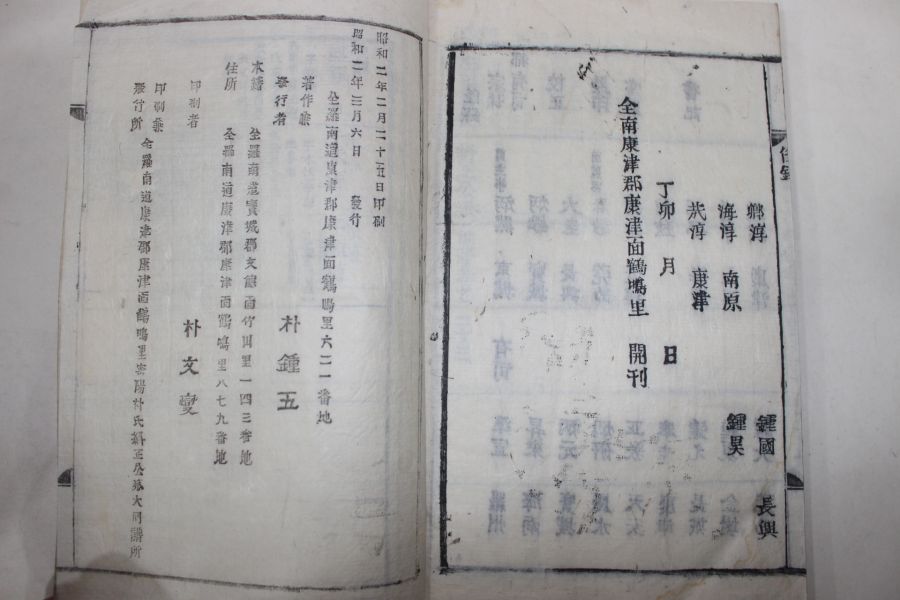 鄕淳
鍾國 長興
海淳 南原
鍾昊
泰淳 康津
丁卯 月 日
全南康津郡康津面鶴鳴里 開刊
昭和二年二月二十五日印刷
昭和二年三月六日 發行
全羅南道康津郡康津面鶴鳴里六二一番地
著作兼
發行者 朴鍾五
本籍 全羅南道寶城郡文德面竹田里一四三番地
住所 全羅南道康津郡康津面鶴鳴里八七九番地
印刷者 朴文燮
印刷兼
發行所 全羅南道康津郡康津面鶴鳴里密陽朴氏糾正公派大同譜所